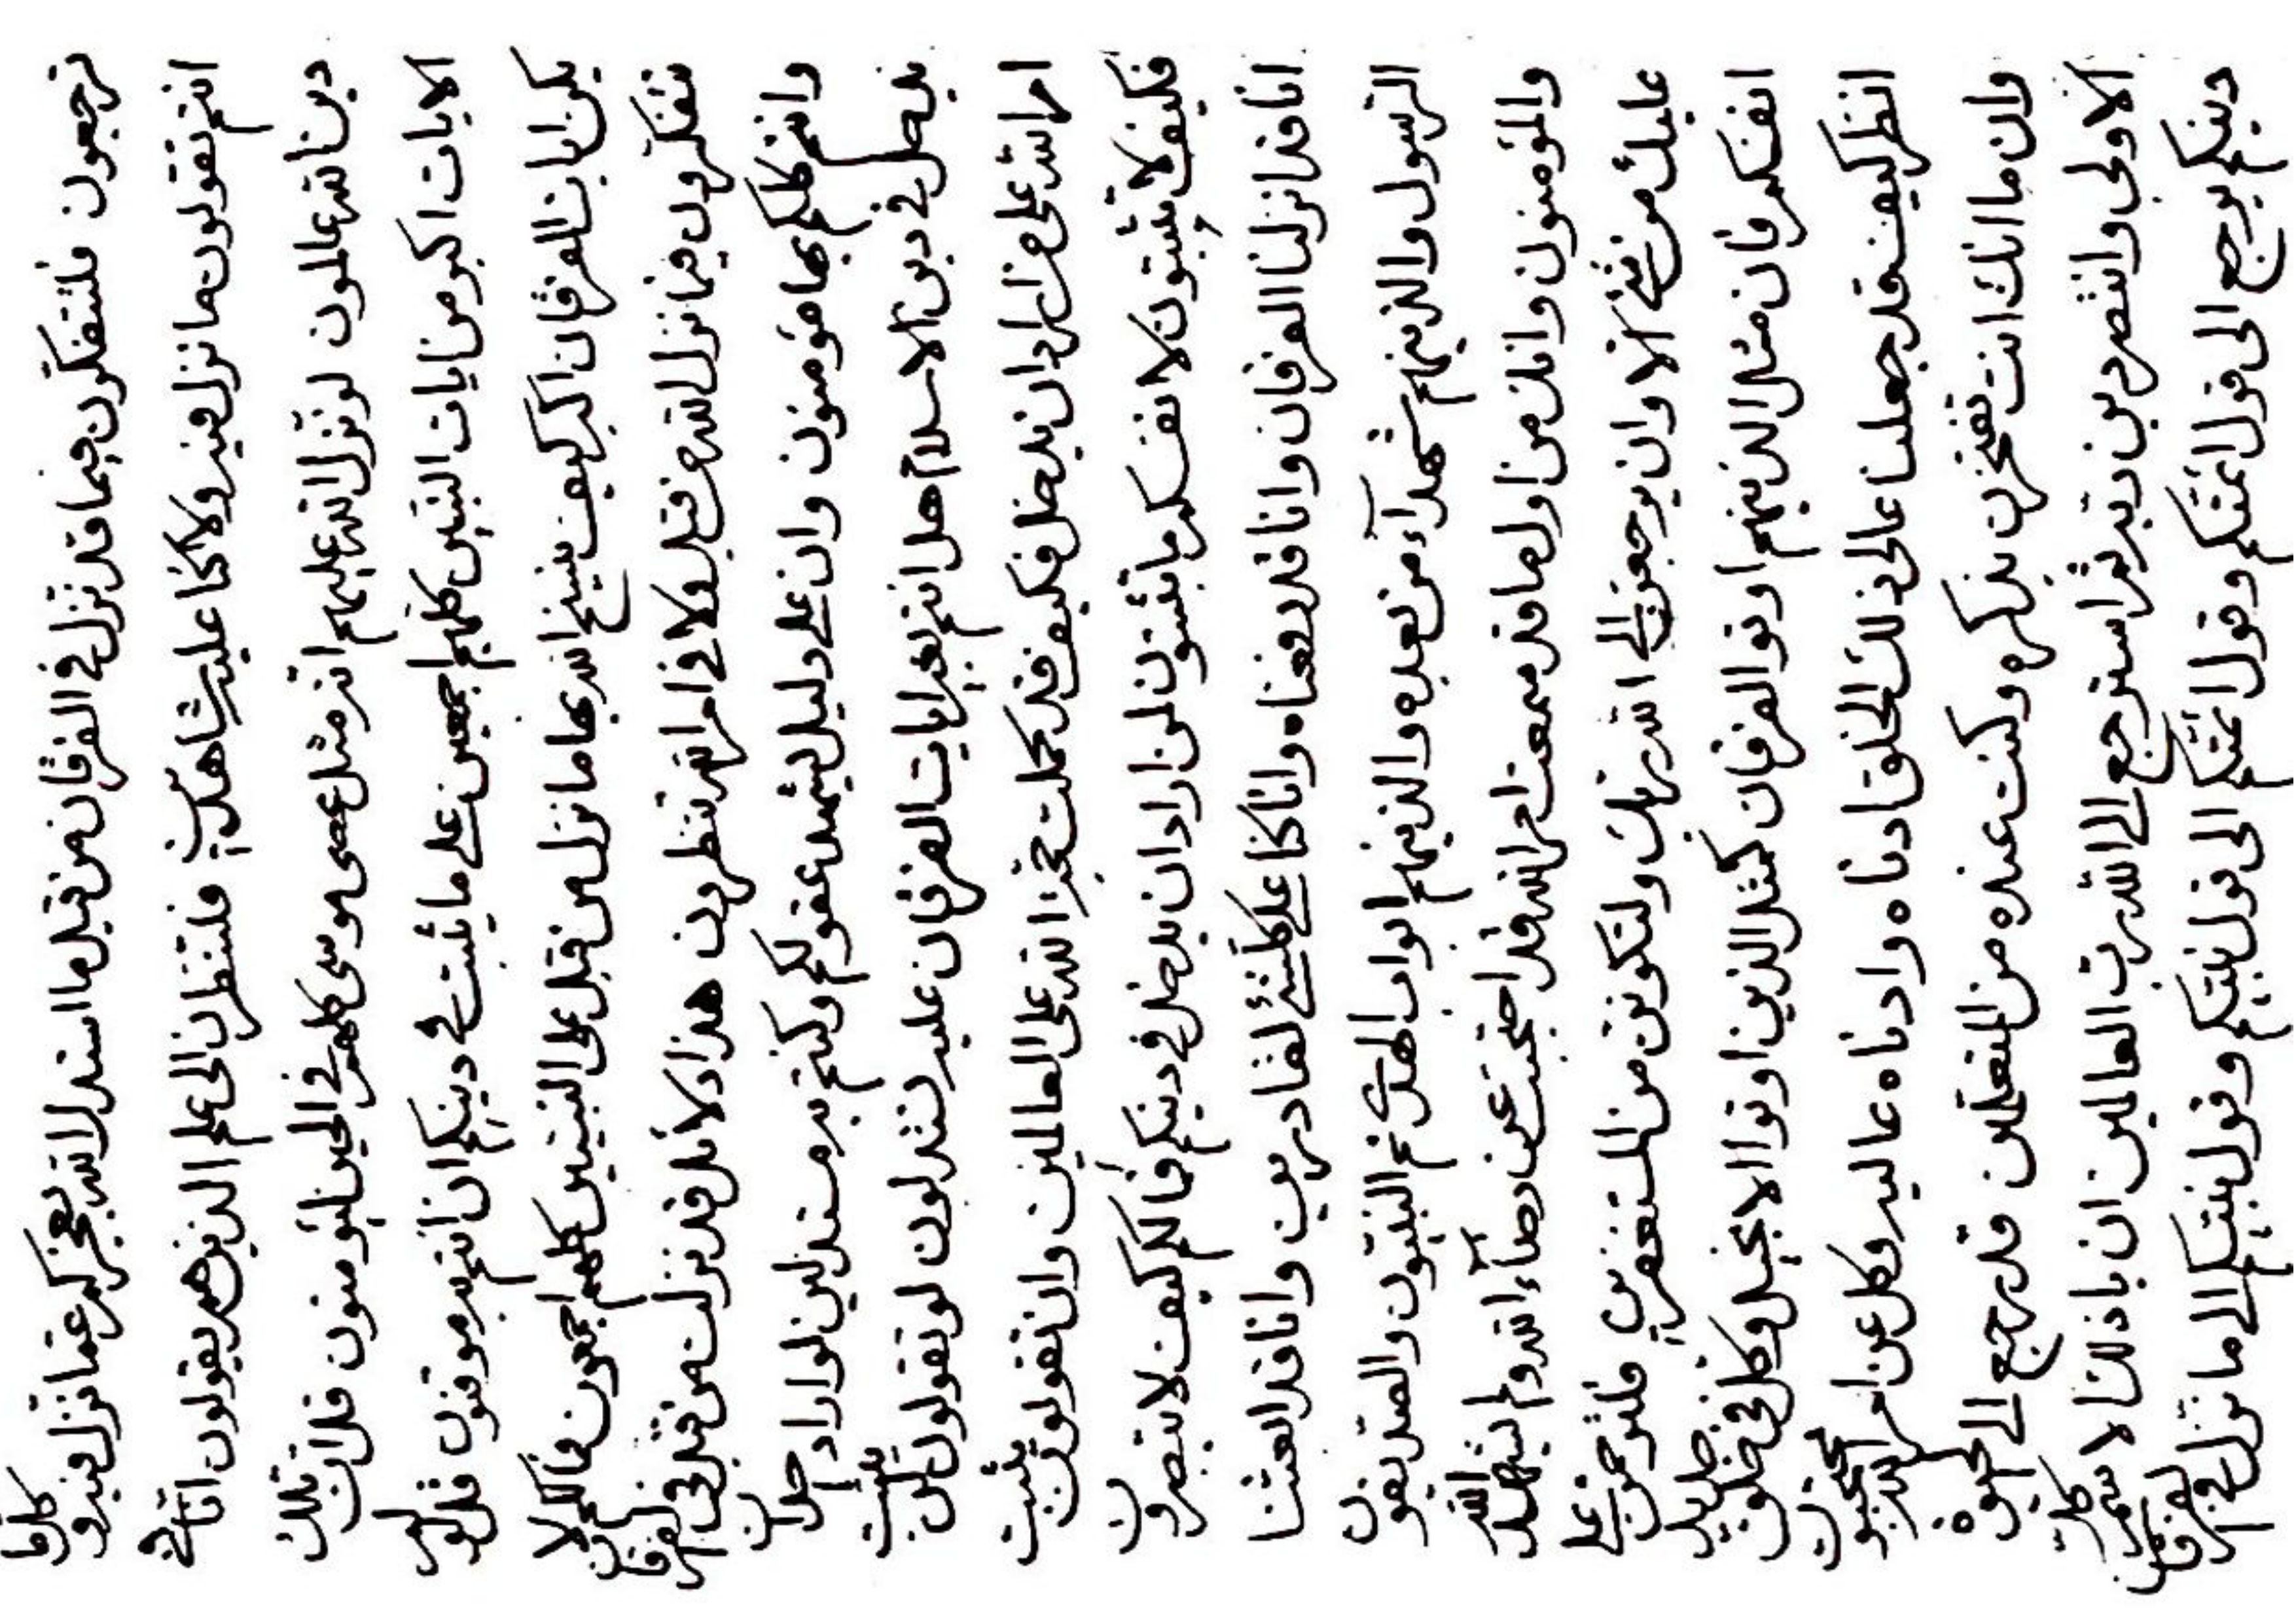 ترجعون فلتتفكّرون فيما قد نزل في الفرقان من قبل ما استدل الله بعجزكم عمّا نزل فيه و
انتم تقولون ما نزل فيه ولا كنا عليه شاهدين فلتنظرن الى علم الذينهم يقولون انا في
دين الله عالمون لو نزل الله عليهم اثر مثل عصى موسى كلهم في الحين ليؤمنون قل ان تلك
الايات اكبر من ايات النبيين كلهم اجمعين على ما يثبت في دينكم ان انتم به موقنون قل لو لم
يكن ايات الفرقان اكبر كيف ينسخ الله بها ما نزل من قبل على النبيين كلهم اجمعون فما لكم لا
تتفكرون فيما نزل الله من قبل ولا في امر الله تنظرون هذا دلائل قد نزلت من قبل في الفرقان
وانتم كلكم بها مؤمنون وان على دليل يشهد عقولكم وكنتم به مستدلين لو اراد احد ان
يدخل في دين الاسلام هل انتم بغير ايات الفرقان عليه تستدلون لو تقولون يثبت
امر الله على من اراد ان يدخل فكيف قد كملت حجة الله على العالمين وان تقولون لن يثبت
فكيف لا تثبتون لانفسكم ما تثبتون لمن اراد ان يدخل في دينكم فما لكم كيف لا تبصرون
انا قد نزلنا الفرقان وانا قد رفعناه وانا كنا على كلشئ لقادرين وانا قد بعثنا
الرسول والذينهم شهداء من بعده والذينهم ابواب الهدى ثم النبيون والصديقون
والمؤمنون وانك من اول ما قد سمعت امر الله قد احتجبت عن رضاء الله ولم يشهد الله
عليك من شئ الا وان يرجعن الى الله ربك ولتكونن من المستغفرين فلترحمن على
انفسكم فان مثل الذينهم اوتوا الفرقان كمثل الذين اوتوا الانجيل وكل في خلق جديد
انظر كيف قد جعلنا عالى ذلك الخلق ادناه وادناه عاليه وكل عن امر الله محتجبون
وان ما انك انت تفتخرن بذكره وكنت عنده من المتعلمين قد رجع الى الحيوة
الاولى وانتصر دين ربه ثم استرجع الى الله رب العالمين ان الاسم
دينكم يرجع الى قول ائمتكم وقول ائمتكم الى قول نبيكم وقول نبيكم الى ما نزل في الفرقان